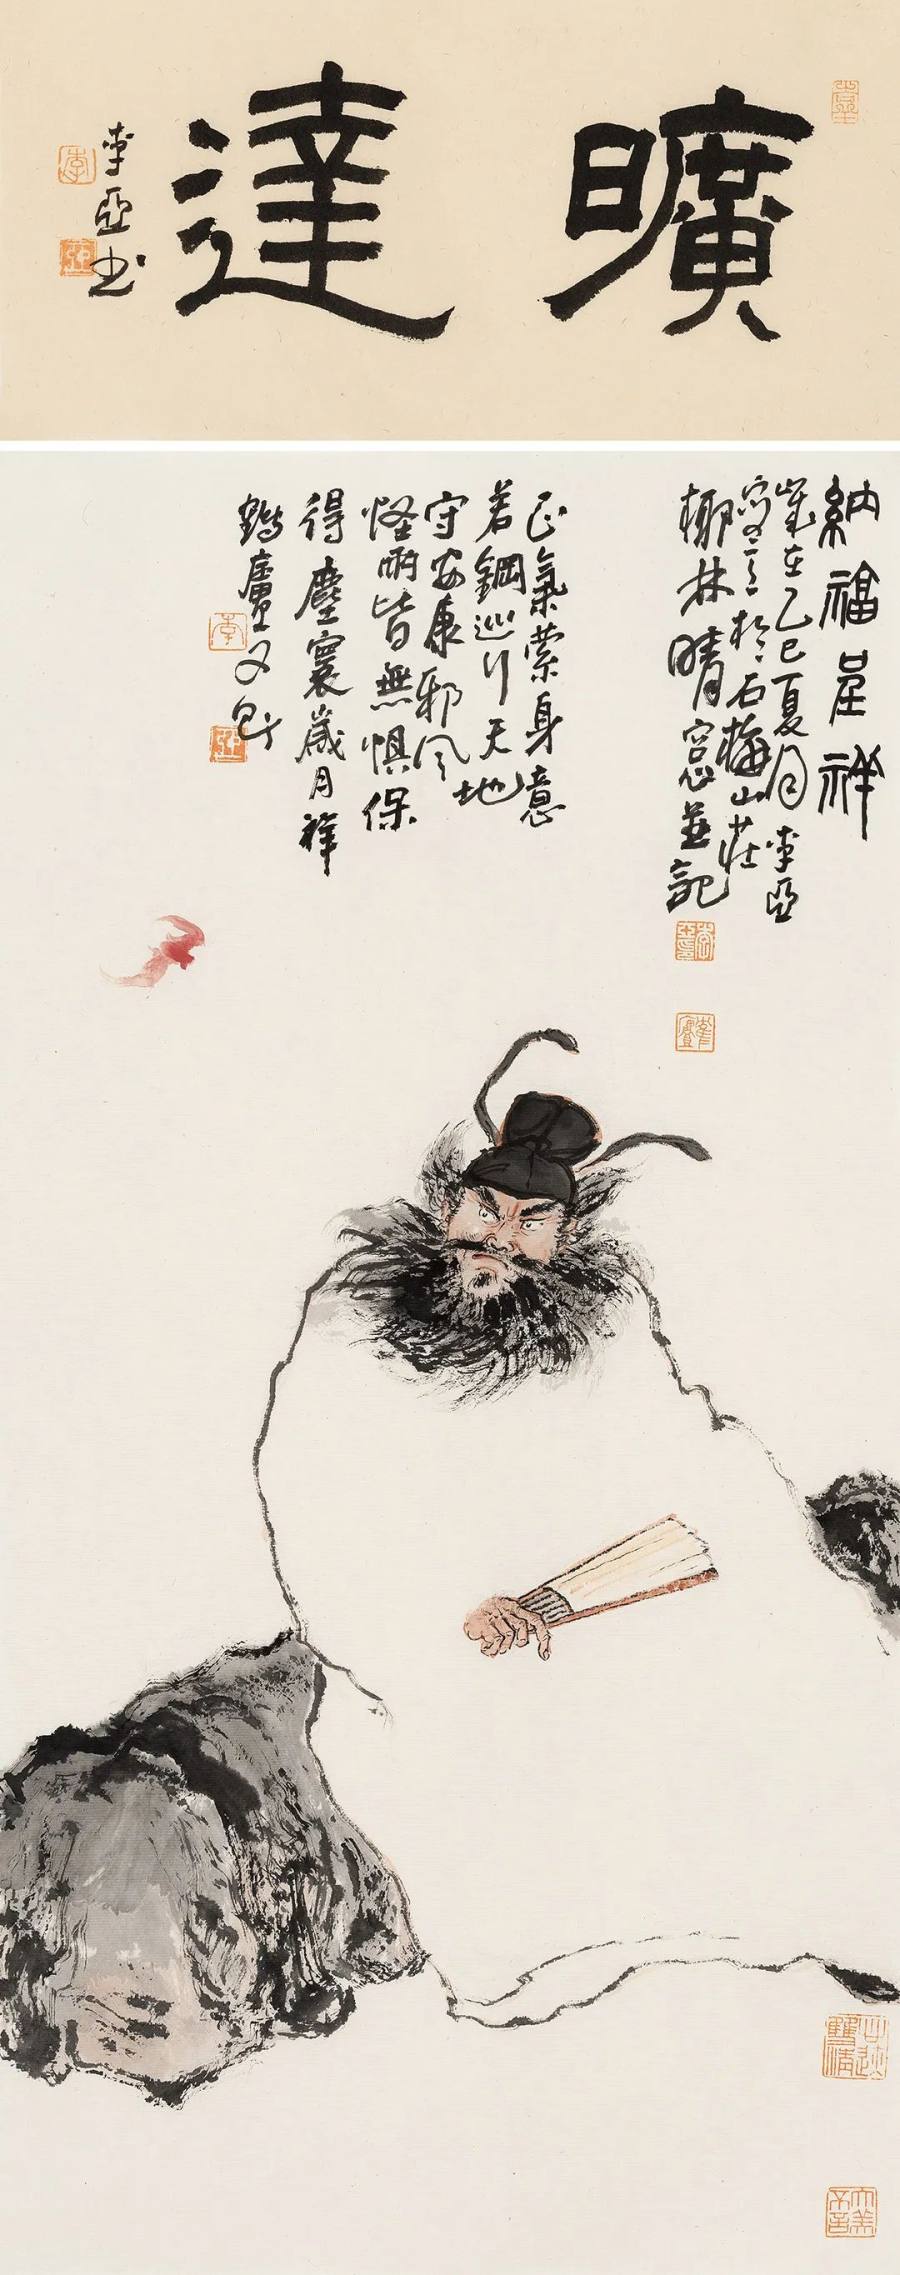 曠達
李亞书
納福呈祥
歲在乙巳夏月李亞
寫之於石梅山莊
林晴窓並記
正氣縈身意
若鋼巡行天地
守安康邪風
怪雨皆無懼保
得塵寰歲月祥
鶴廬又